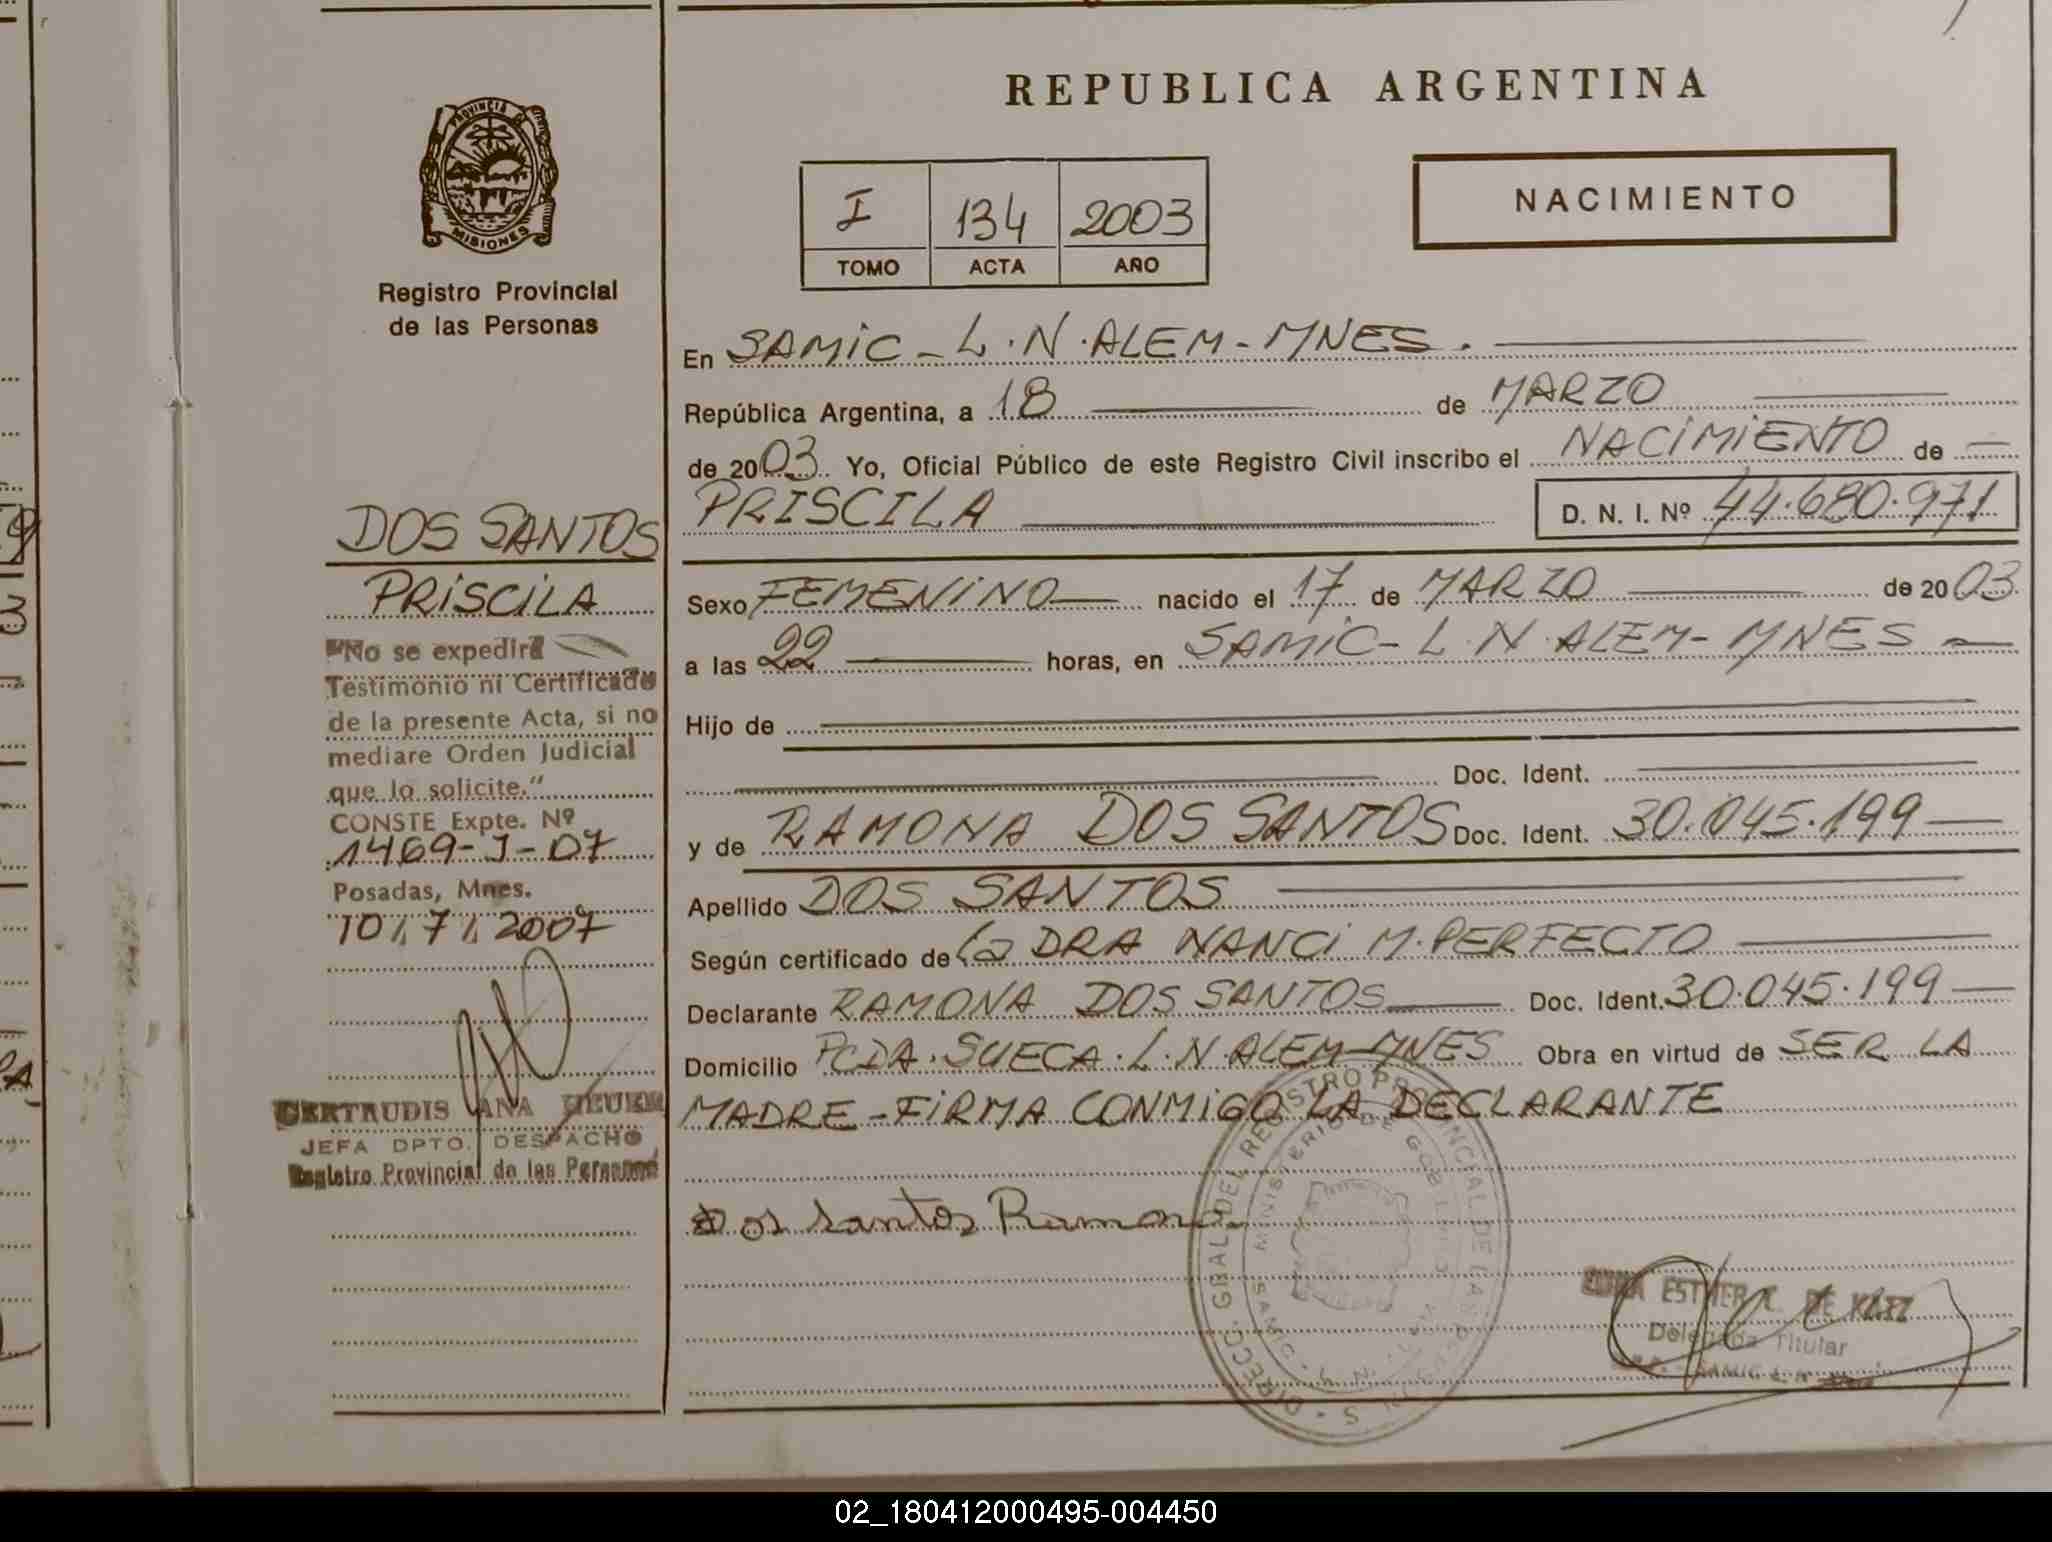 REPUBLICA ARGENTINA
PROVINCIA DE
MISIONES
Registro Provincial
de las Personas
I 134 2003
TOMO ACTA AÑO
NACIMIENTO
En SAMIC - L.N. ALEM - MNES.
República Argentina, a 18 de MARZO
de 2003. Yo, Oficial Público de este Registro Civil inscribo el NACIMIENTO de
PRISCILA D. N. I. Nº 44.680.971
Sexo FEMENINO nacido el 17 de MARZO de 2003
a las 22 horas, en SAMIC - L.N. ALEM - MNES
Hijo de
Doc. Ident.
y de RAMONA DOS SANTOS Doc. Ident. 30.045.199
Apellido DOS SANTOS
Según certificado de la DRA NANCI M. PERFECTO
Declarante RAMONA DOS SANTOS Doc. Ident. 30.045.199
Domicilio PCIA. SUECA. L.N. ALEM - MNES Obra en virtud de SER LA
MADRE - FIRMA CONMIGO LA DECLARANTE
Dos santos Ramona
DOS SANTOS
PRISCILA
"No se expedirá
Testimonio ni Certificado
de la presente Acta, si no
mediare Orden Judicial
que lo solicite."
CONSTE Expte. Nº
1469-J-07
Posadas, Mnes.
10/7/2007
GERTRUDIS ANA
JEFA DPTO. DESPACHO
Registro Provincial de las Personas
DIRECC. GRAL. DEL REGISTRO PROVINCIAL DE LAS
MINISTERIO DE GOBIERNO
ESTHER C. DE
Delegada Titular
SAMIC L. N.
02_180412000495-004450